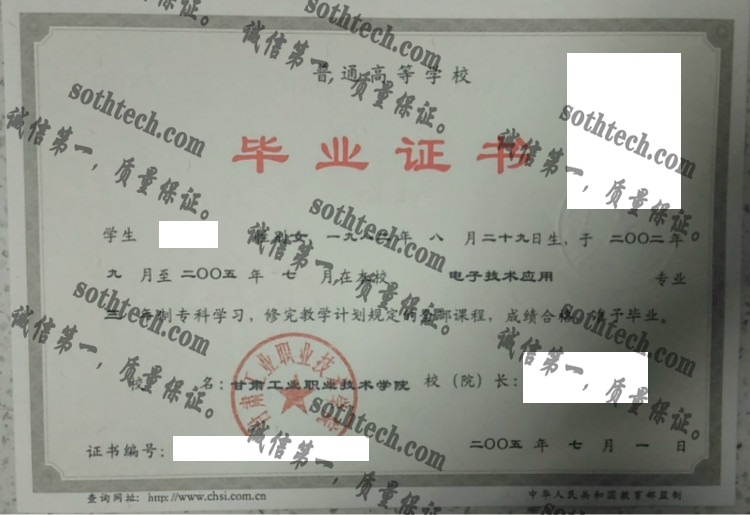 普通高等学校
毕业证书
学生 性别女 一九八 年 八 月二十九日生,于 二〇〇二年
九 月至二〇〇五年 七 月在本校 电子技术应用 专业
三 年制专科学习,修完教学计划规定的全部课程,成绩合格,准予毕业。
校 名:甘肃工业职业技术学院 校(院)长:
甘肃工业职业技术学院
证书编号: 二〇〇五 年 七 月 一 日
查询网址: http://www.chsi.com.cn 中华人民共和国教育部监制
sothtech.com
诚信第一,质量保证。
sothtech.com
诚信第一,质量保证。
sothtech.com
诚信第一,质量保证。
sothtech.com
诚信第一,质量保证。
sothtech.com
诚信第一,质量保证。
sothtech.com
诚信第一,质量保证。
sothtech.com
诚信第一,质量保证。
sothtech.com
诚信第一,质量保证。